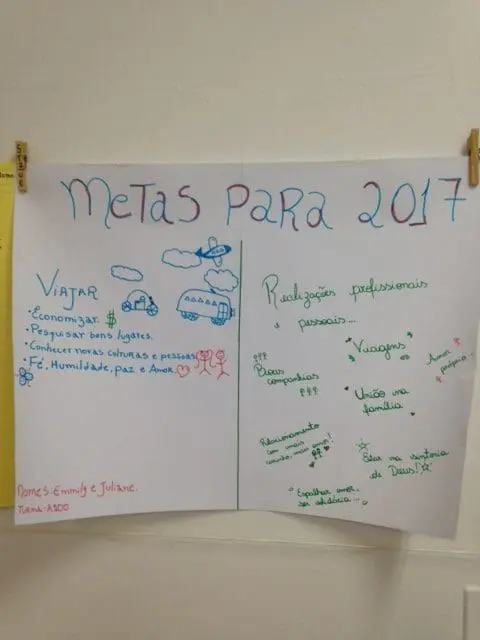 METAS PARA 2017
VIAJAR
• Economizar $
• Pesquisar bons lugares.
• Conhecer novas culturas e pessoas
• Fé, Humildade, paz e Amor.
Nomes: Emmily e Juliane.
Turma: A100
Realizações profissionais
e pessoais...
Viagens
Amor
próprio...
Boas
companhias
União na
família
Relacionamento
com mais
carinho, mais amor!
Estar na sintonia
de Deus!
Espalhar amor,
ser solidária...